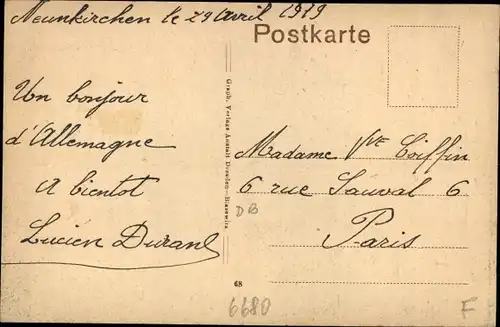 Neunkirchen le 29 Avril 1919
Postkarte
Un bonjour
d'Allemagne
A bientot
Lucien Durand
Graph. Verlags Anstalt Dresden-Blasewitz
Madame Vve Coiffin
6 rue Sauval 6
Paris
DB
68
6680
F